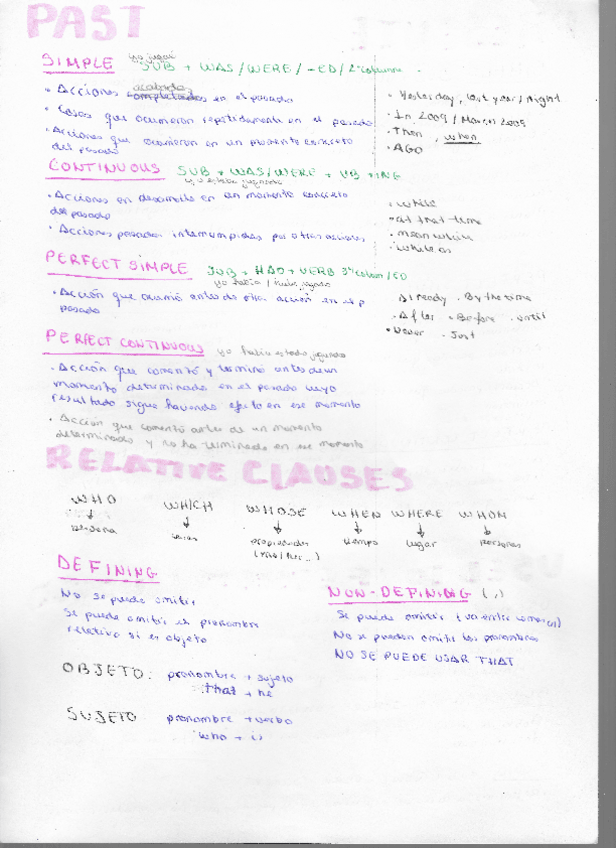 PAST
yo jugué
SIMPLE SUB + WAS/WERE/-ED/2ª columna
acabadas
• Acciones completadas en el pasado
• Yesterday, last year/night
• Cosas que ocurrieron repetidamente en el pasado
• In 2009 / March 2009
• Acciones que ocurrieron en un momento concreto
del pasado
• Then, when
• AGO
CONTINUOUS SUB + WAS/WERE + VB + ING
yo estaba jugando
• Acciones en desarrollo en un momento concreto
del pasado
• Acciones pasadas interrumpidas por otras acciones
• While
• at that time
• meanwhile
• while as
PERFECT SIMPLE SUB + HAD + VERB 3ª column/ED
yo había / hube jugado
• Acción que ocurrió antes de otra acción en el p
pasado
Already . By the time
. After . Before . until
. Never . Just
PERFECT CONTINUOUS yo había estado jugando
• Acción que comenzó y terminó antes de un
momento determinado en el pasado cuyo
resultado sigue haciendo efecto en ese momento
• Acción que comenzó antes de un momento
determinado y no ha terminado en ese momento
RELATIVE CLAUSES
WHO WHICH WHOSE WHEN WHERE WHOM
persona cosas propiedades tiempo lugar personas
DEFINING
No se puede omitir
Se puede omitir el pronombre
relativo si es objeto
NON-DEFINING (,)
Se puede omitir (van entre comas)
No se pueden omitir los pronombres
NO SE PUEDE USAR THAT
OBJETO: pronombre + sujeto
that + he
SUJETO pronombre + verbo
who + is